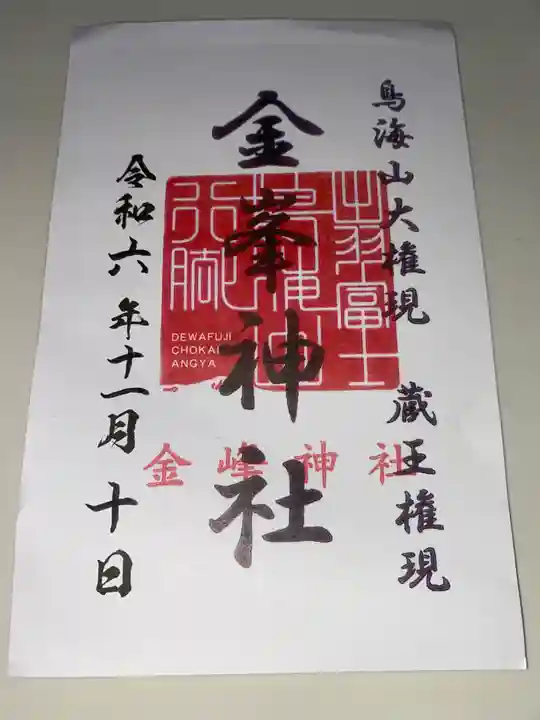 鳥海山大権現 蔵王権現
金峯神社
出羽富士
鳥海山
行脚
DEWAFUJI
CHOKAI
ANGYA
金峰神社
令和六年十一月十日